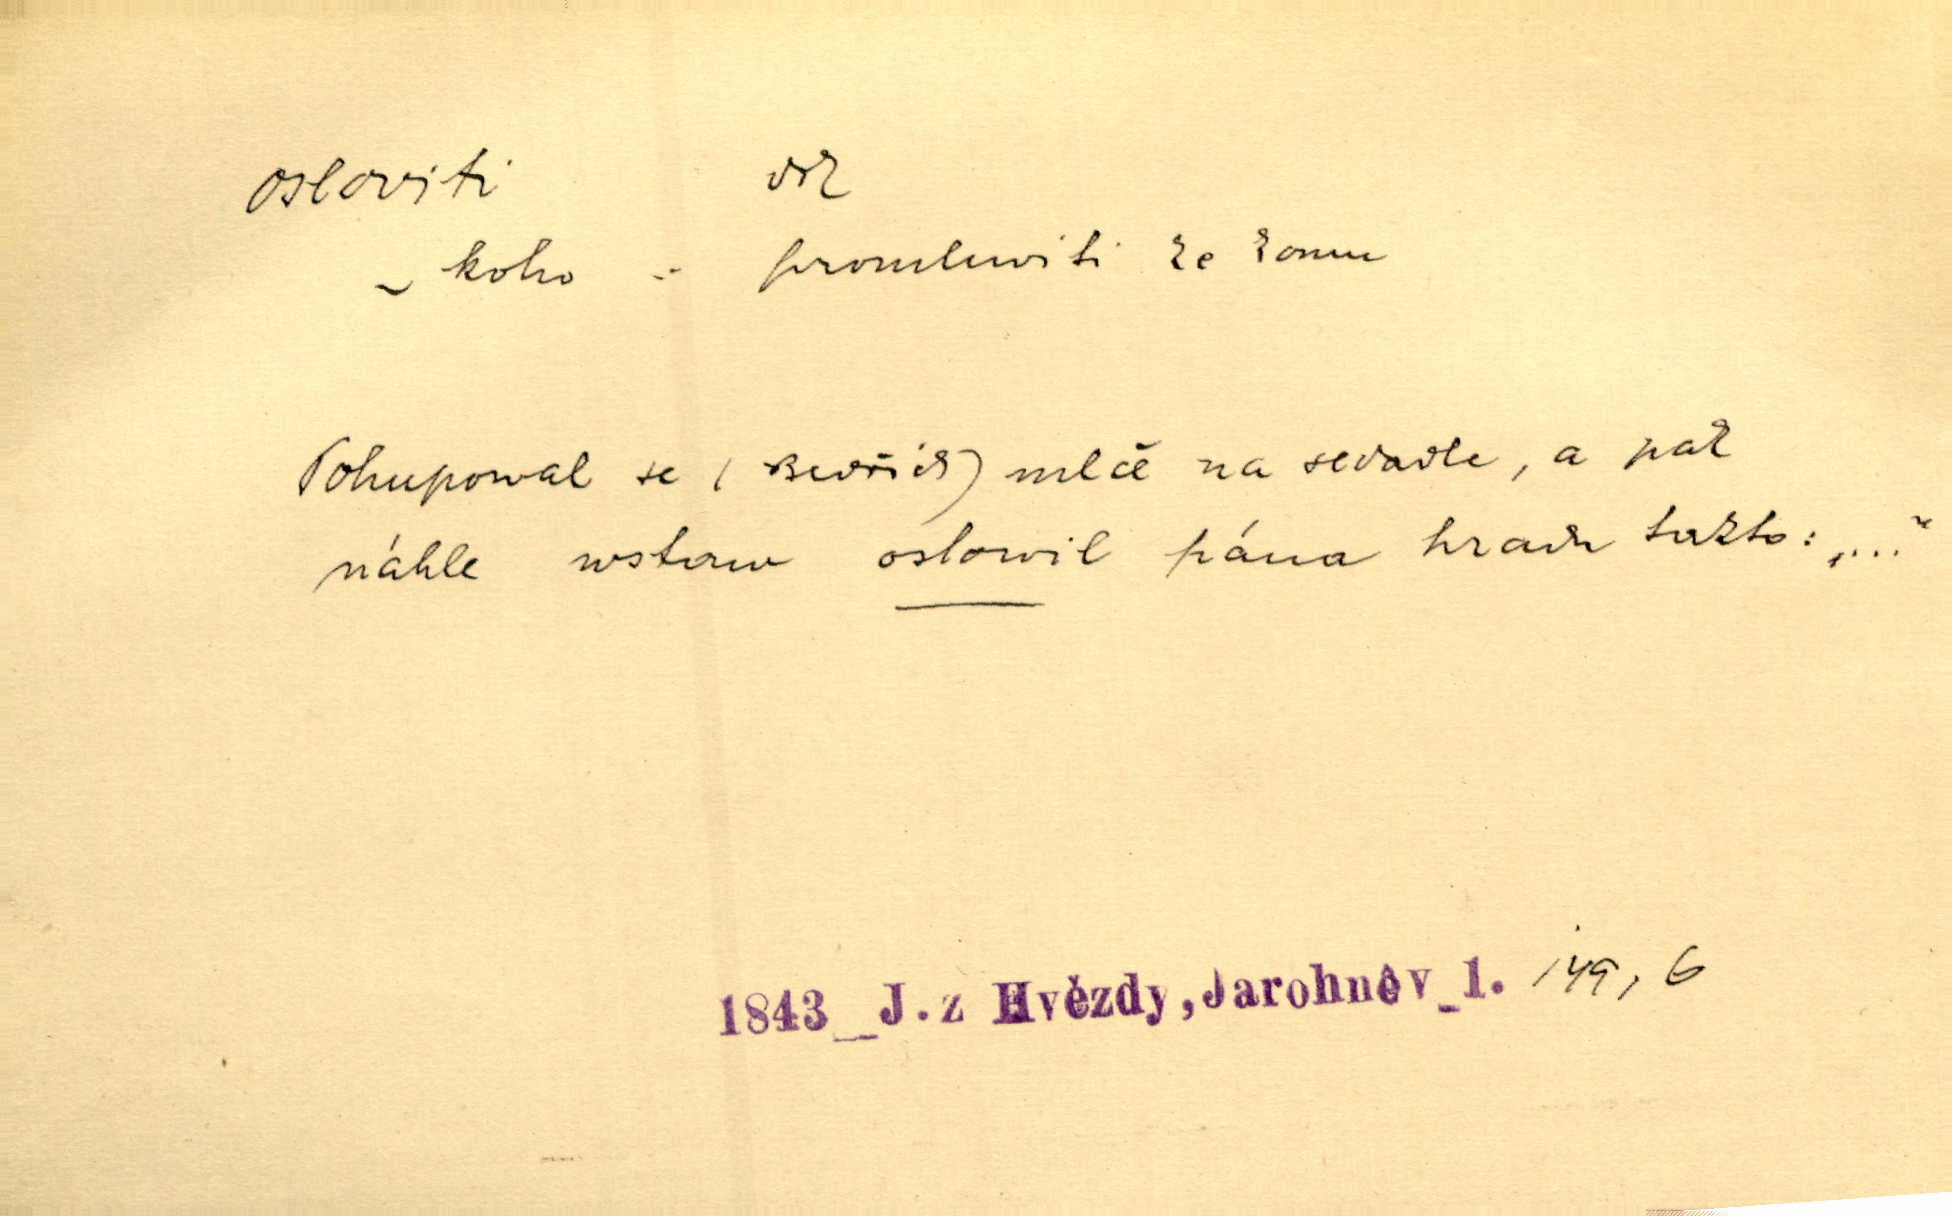 osloviti dok
~ koho - promluviti ke komu
Pohupowal se (Bedřich) mlčě na sedadle, a pak
náhle wstaw oslowil pána hradu takto: „..."
1843_J. z Hvězdy, Jarohněv_1. 149, 6